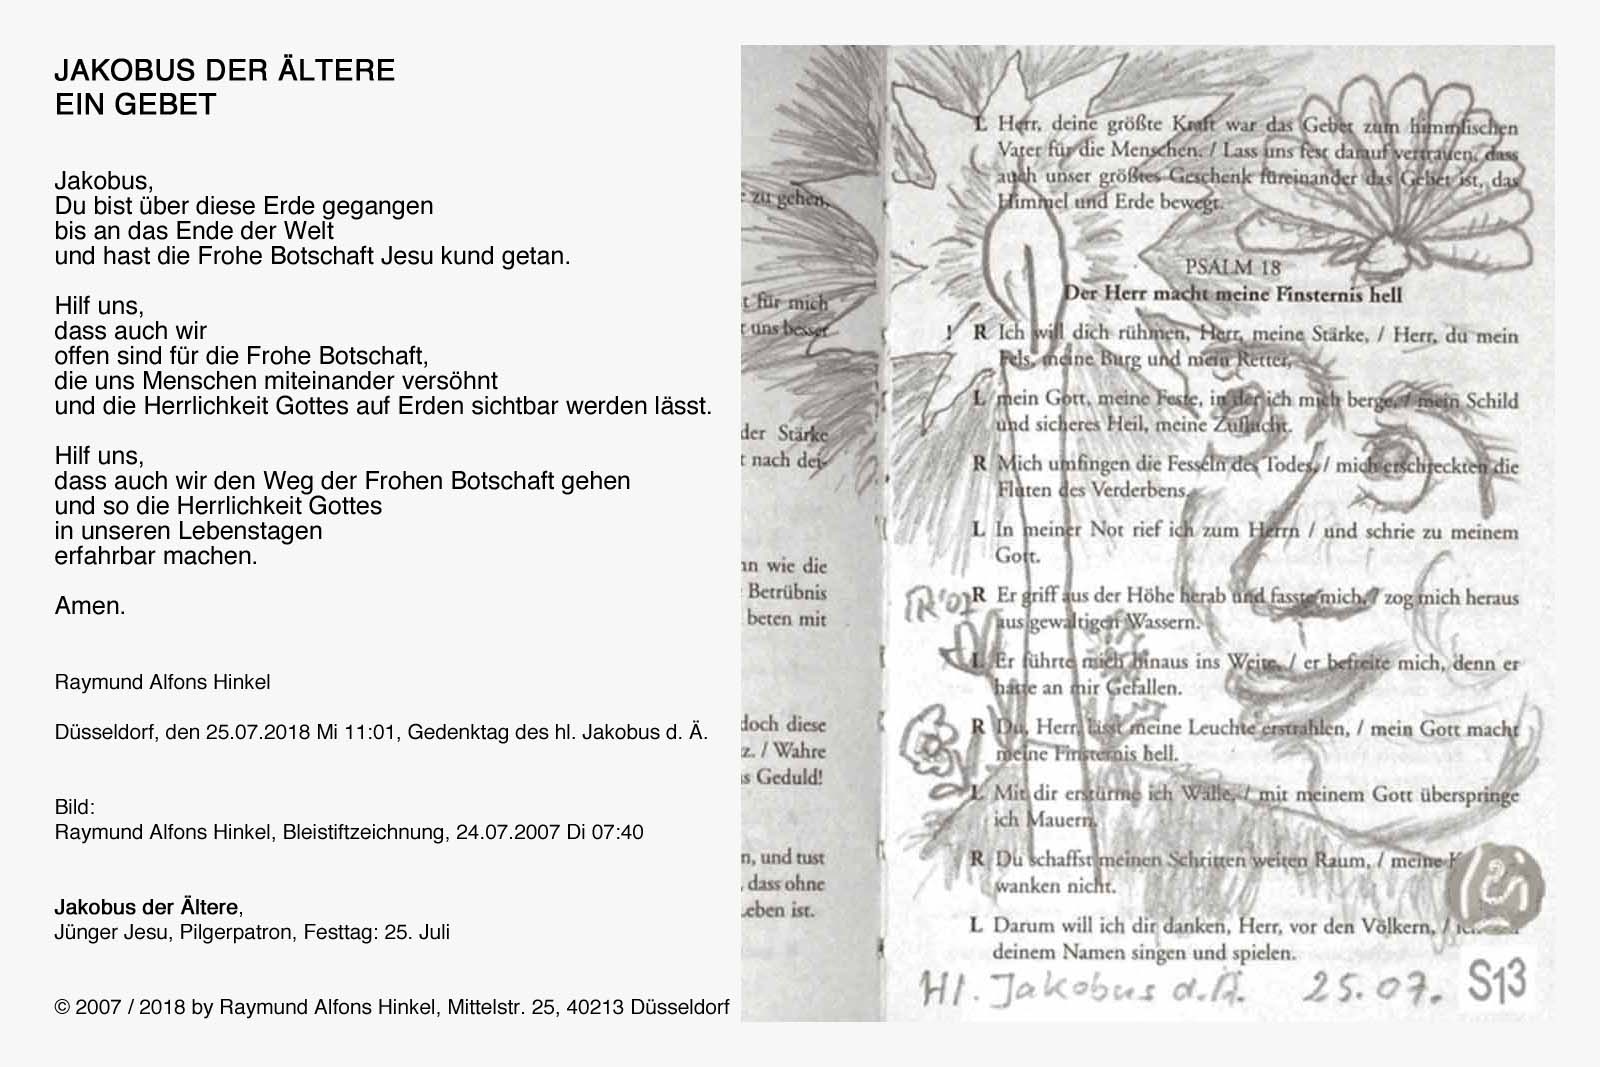 JAKOBUS DER ÄLTERE
EIN GEBET
Jakobus,
Du bist über diese Erde gegangen
bis an das Ende der Welt
und hast die Frohe Botschaft Jesu kund getan.
Hilf uns,
dass auch wir
offen sind für die Frohe Botschaft,
die uns Menschen miteinander versöhnt
und die Herrlichkeit Gottes auf Erden sichtbar werden lässt.
Hilf uns,
dass auch wir den Weg der Frohen Botschaft gehen
und so die Herrlichkeit Gottes
in unseren Lebenstagen
erfahrbar machen.
Amen.
Raymund Alfons Hinkel
Düsseldorf, den 25.07.2018 Mi 11:01, Gedenktag des hl. Jakobus d. Ä.
Bild:
Raymund Alfons Hinkel, Bleistiftzeichnung, 24.07.2007 Di 07:40
Jakobus der Ältere,
Jünger Jesu, Pilgerpatron, Festtag: 25. Juli
© 2007 / 2018 by Raymund Alfons Hinkel, Mittelstr. 25, 40213 Düsseldorf
zu gehen,
für mich
uns besser
der Stärke
nach dei-
wie die
Betrübnis
beten mit
doch diese
z. / Wahre
Geduld!
n, und tust
, dass ohne
Leben ist.
L Herr, deine größte Kraft war das Gebet zum himmlischen
Vater für die Menschen. / Lass uns fest darauf vertrauen, dass
auch unser größtes Geschenk füreinander das Gebet ist, das
Himmel und Erde bewegt.
PSALM 18
Der Herr macht meine Finsternis hell
! R Ich will dich rühmen, Herr, meine Stärke, / Herr, du mein
Fels, meine Burg und mein Retter,
L mein Gott, meine Feste, in der ich mich berge, / mein Schild
und sicheres Heil, meine Zuflucht.
R Mich umfingen die Fesseln des Todes, / mich erschreckten die
Fluten des Verderbens.
L In meiner Not rief ich zum Herrn / und schrie zu meinem
Gott.
R Er griff aus der Höhe herab und fasste mich, / zog mich heraus
aus gewaltigen Wassern.
L Er führte mich hinaus ins Weite, / er befreite mich, denn er
hatte an mir Gefallen.
R Du, Herr, lässt meine Leuchte erstrahlen, / mein Gott macht
meine Finsternis hell.
L Mit dir erstürme ich Wälle, / mit meinem Gott überspringe
ich Mauern.
R Du schaffst meinen Schritten weiten Raum, / meine
wanken nicht.
L Darum will ich dir danken, Herr, vor den Völkern, /
deinem Namen singen und spielen.
Hl. Jakobus d. Ä. 25.07.
S13